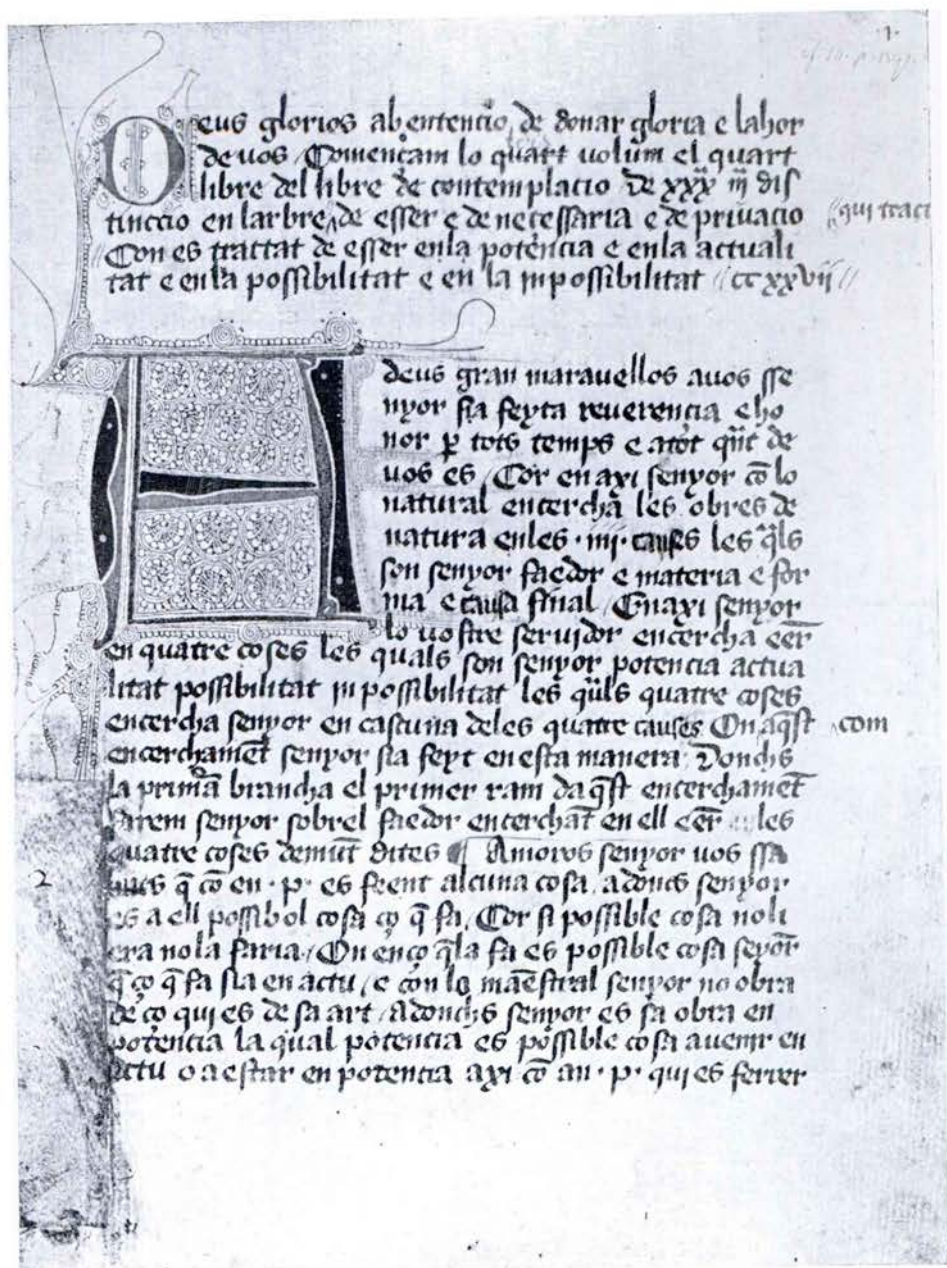 Deus glorios ab entencio de donar gloria e lahor
de uos Començam lo quart uolum el quart
libre del libre de contemplacio de xxx iiij dis
tinccio en larbre de esser e de necessaria e de priuacio qui tract
Con es trattat de esser enla potencia e enla actuali
tat e enla possibilitat e en la inpossibilitat ccxxvij
A deus gran marauellos auos sse
nyor sia feyta reuerencia e ho
nor p tots temps e atot qñt de
uos es Cor en axi senyor cō lo
natural encercha les obres de
natura enles iiij causes les q̄ls
son senyor faedor e materia e for
ma e causa final Enaxi senyor
lo uostre seruidor encercha eēr
en quatre coses les quals son senyor potencia actua
litat possibilitat inpossibilitat les q̄ls quatre coses
encercha senyor en cascuna deles quatre causes On aq̄st com
encerchamēt senyor sia feyt en esta manera Donchs
la primāa brancha el primer ram daq̄st encerchamēt
farem senyor sobrel faedor encerchāt en ell eēr les
quatre coses demūt dites Amoros senyor uos ssa
q̄ cō en p es feent alcuna cosa adoncs senyor
es a ell possibol cosa ço q̄ fa Cor si possible cosa noli
era nola faria On enço q̄la fa es possible cosa seyōr
q̄ ço q̄ fa sia en actu e con lo maestral senyor no obra
de ço qui es de sa art Adonchs senyor es sa obra en
potencia la qual potencia es possible cosa auenir en
actu o a estar en potencia axi cō an p qui es ferrer
1
2